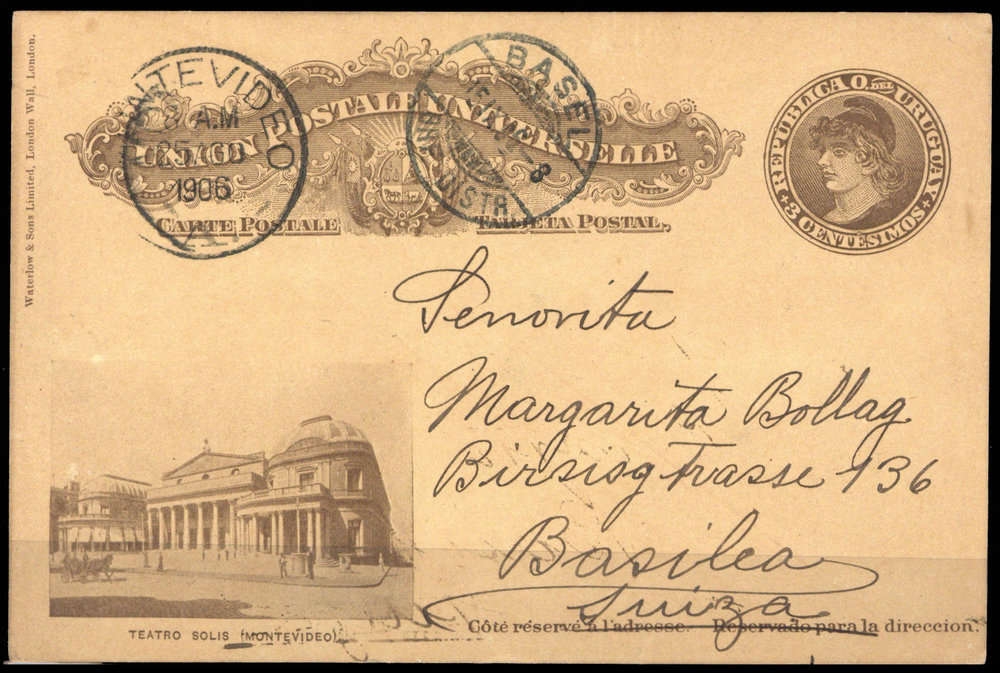 Waterlow & Sons Limited, London Wall, London.
UNION POSTALE UNIVERSELLE
CARTE POSTALE TARJETA POSTAL.
MONTEVIDEO
8 A.M
25 AGO
1906
BASEL
REPUBLICA O. DEL URUGUAY
3 CENTESIMOS
Senorita
Margarita Bollag
Birsigstrasse 136
Basilea
Suiza
TEATRO SOLIS (MONTEVIDEO)
Côté réservé à l'adresse. Reservado para la direccion.